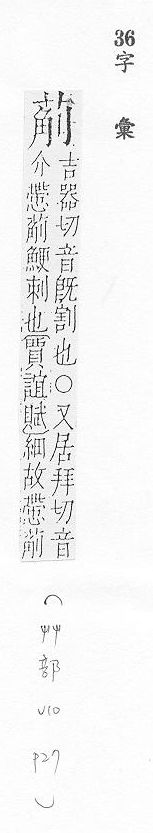 36字彙
葪
吉器切音旣割也○又居拜切音
介慸葪鯁刺也賈誼賦細故慸葪
(艸部 V10 P27)